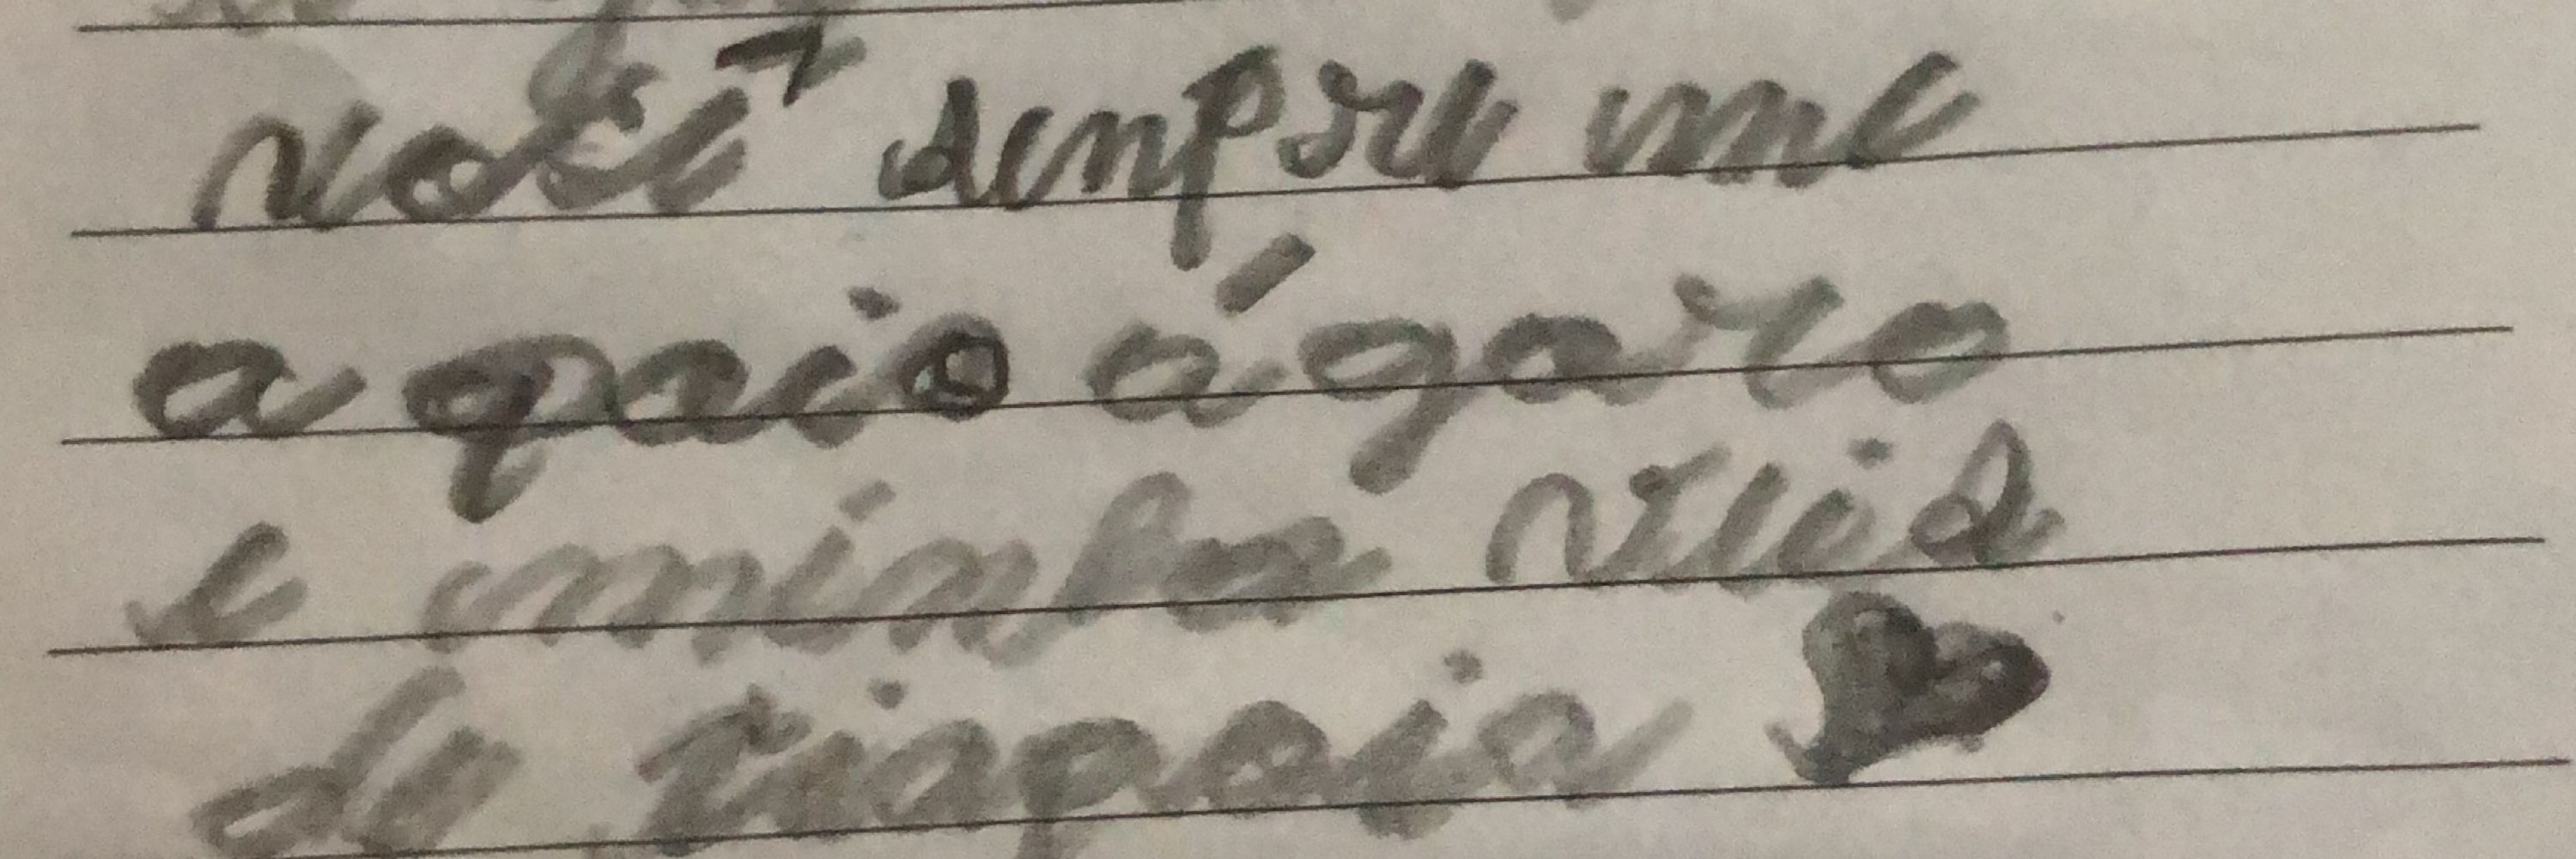 você senpre me
a paio ágaro
e minha veis
de ti apaia